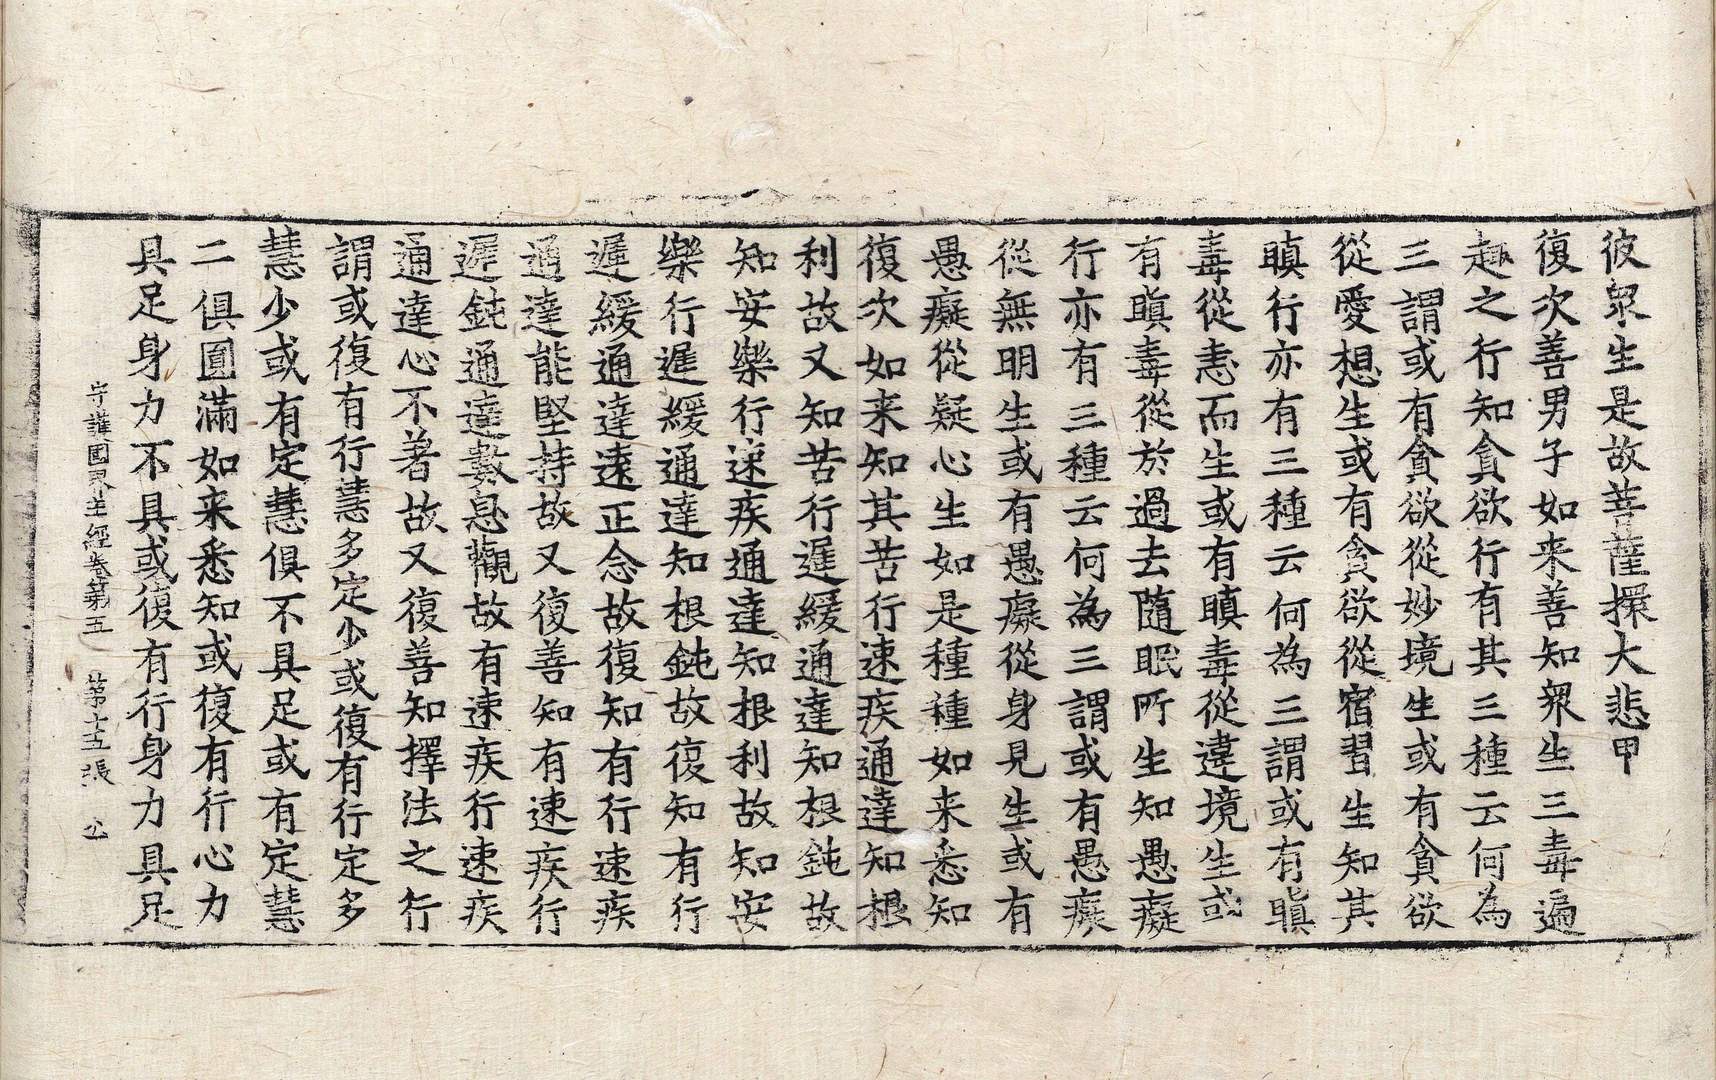 彼衆生是故菩薩擐大悲甲
復次善男子如来善知衆生三毒遍
趣之行知貪欲行有其三種云何為
三謂或有貪欲從妙境生或有貪欲
從愛想生或有貪欲從宿習生知其
瞋行亦有三種云何為三謂或有瞋
毒從恚而生或有瞋毒從違境生或
有瞋毒從於過去隨眠所生知愚癡
行亦有三種云何為三謂或有愚癡
從無明生或有愚癡從身見生或有
愚癡從疑心生如是種種如来悉知
復次如来知其苦行速疾通達知根
利故又知苦行遲緩通達知根鈍故
知安樂行速疾通達知根利故知安
樂行遲緩通達知根鈍故復知有行
遲緩通達遠正念故復知有行速疾
通達能堅持故又復善知有速疾行
遲鈍通達數息觀故有速疾行速疾
通達心不著故又復善知擇法之行
謂或復有行慧多定少或復有行定多
慧少或有定慧俱不具足或有定慧
二俱圓滿如来悉知或復有行心力
具足身力不具或復有行身力具足
守護國界主經卷第五　第十五張　公